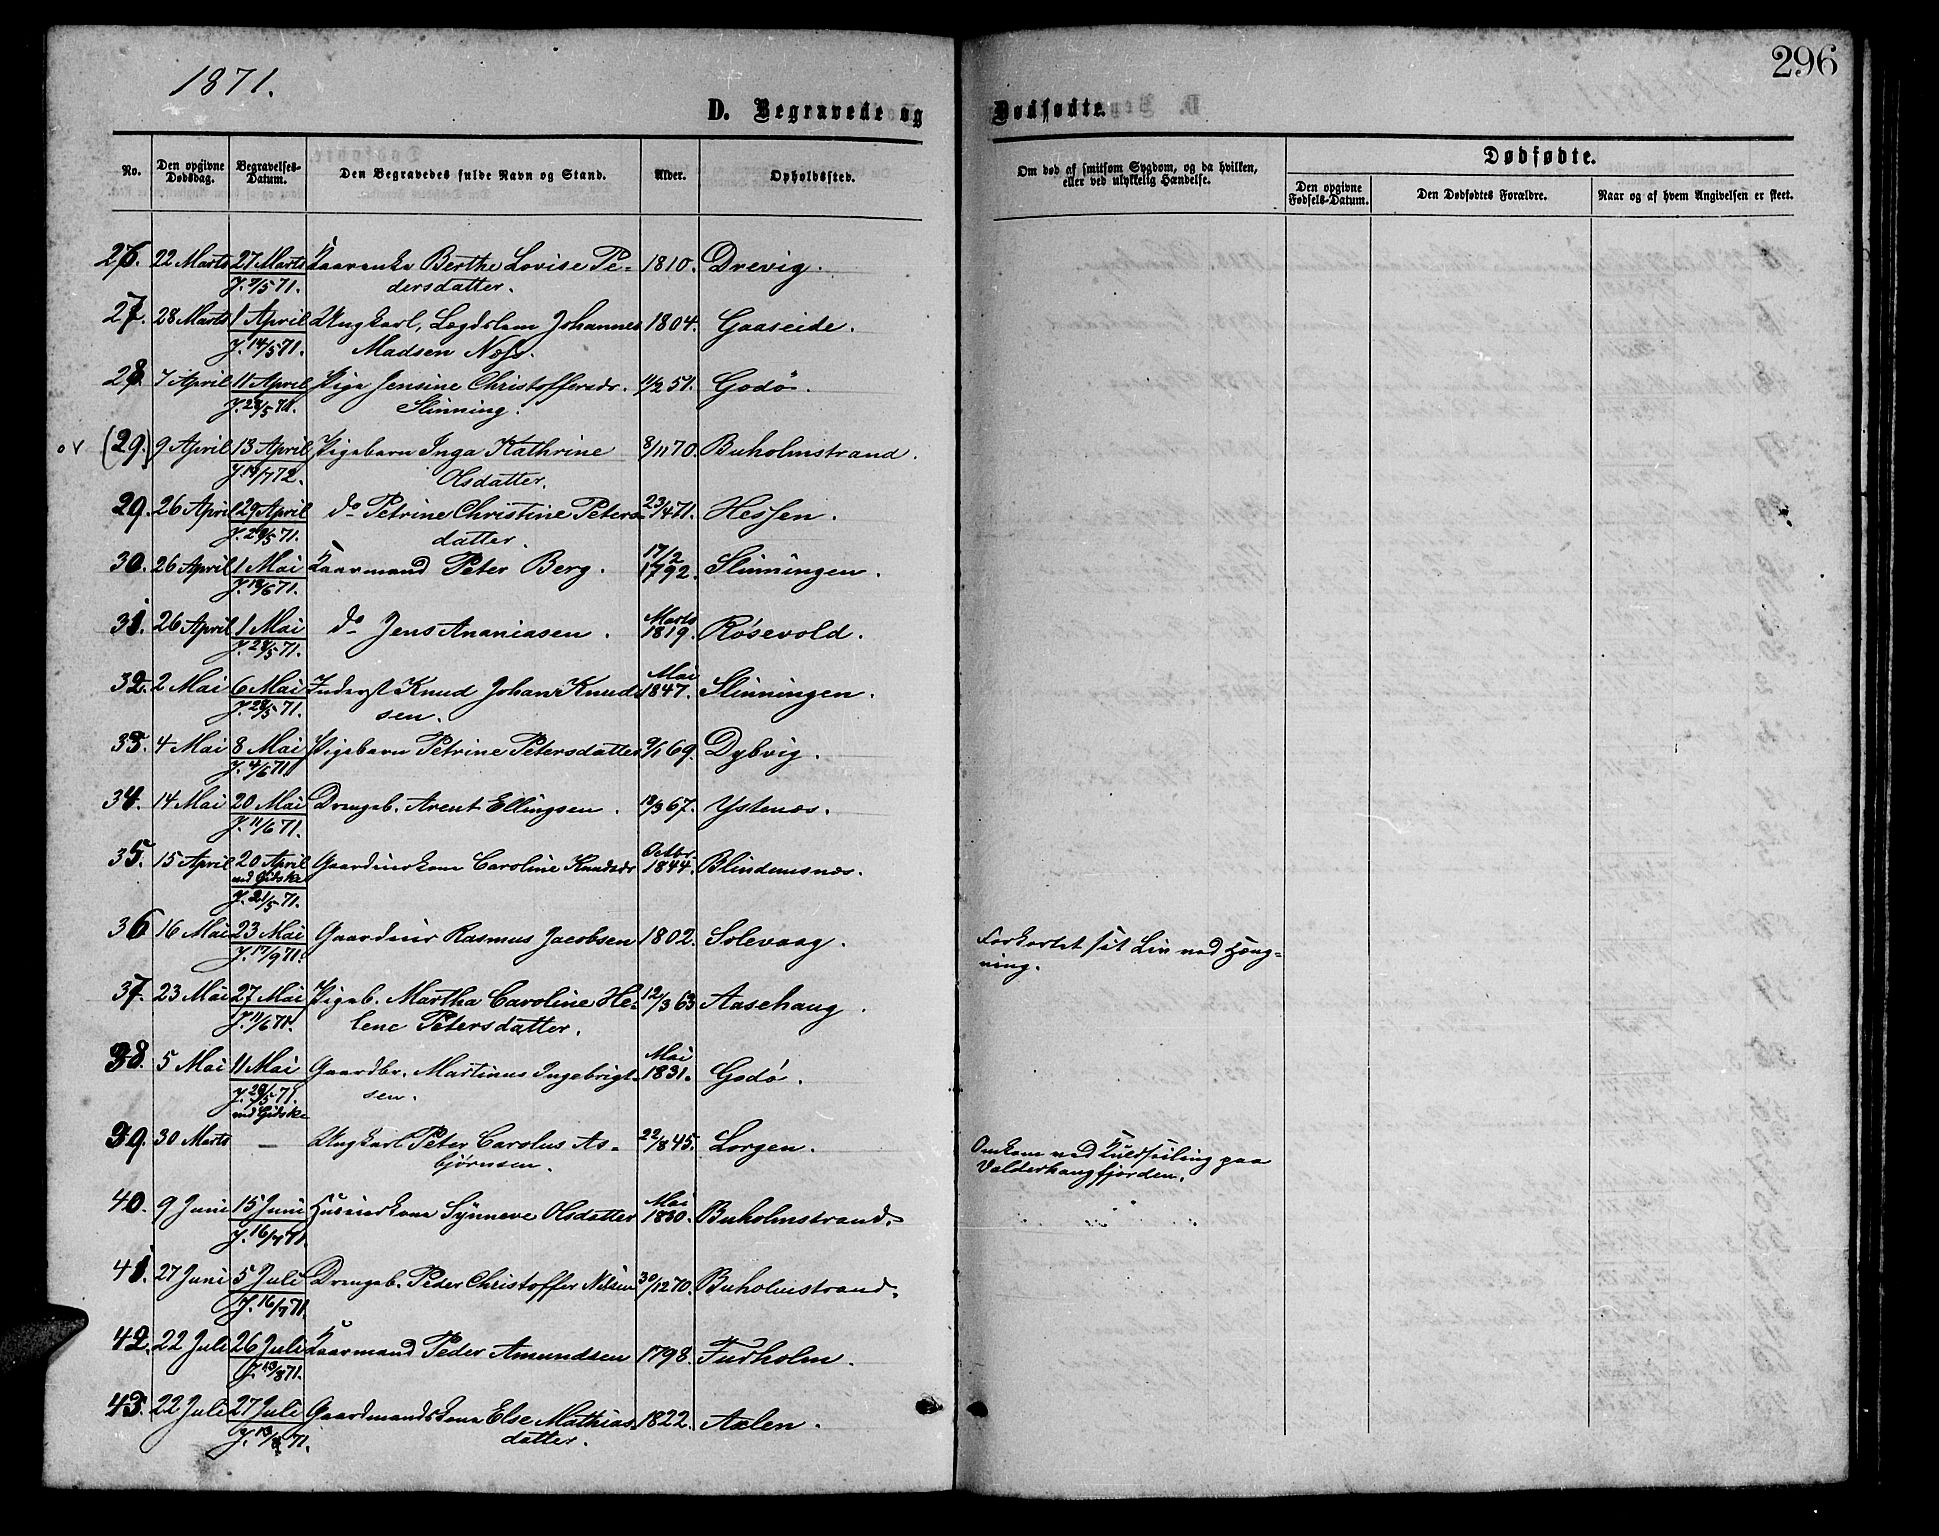 1871.
296
D. Begravede og Dødfødte.
No. Den opgivne Dødsdag. Begravelses-Datum. Den Begravedes fulde Navn og Stand. Alder. Opholdssted. Om død af smitsom Sygdom, og da hvilken, eller ved ulykkelig Hændelse. Dødfødte.
Den opgivne Fødsels-Datum. Den Dødfødtes Forældre. Naar og af hvem Angivelsen er skeet.
26. 22 Marts 27 Marts Kaarenke Berthe Lovise Pe- 1810. Drevig.
J. 7/5 71. dersdatter.
27. 28 Marts 1 April Ungkarl, Lægdslem Johannes 1804. Gaaseide.
J. 14/5 71. Madsen Næss.
28. 7 April 11 April Pige Jensine Christoffersdr. 11/2 51. Godø.
J. 28/5 71. Slinning.
(29.) 9 April 13 April Pigebarn Inga Kathrine 8/11 70. Buholmstrand.
J. 14/7 72. Olsdatter.
29. 26 April 29 April do Petrine Christine Peters- 23/4 71. Hessen.
J. 29/5 71. datter.
30. 26 April 1 Mai Kaarmand Peter Berg. 17/2 1792. Slinningen.
J. 18/6 71.
31. 26 April 1 Mai do Jens Ananiasen. Marts 1819. Røsevold.
J. 28/5 71.
32. 2 Mai 6 Mai Inderst Knud Johan Knud- Mai 1847. Slinningen.
J. 28/5 71. sen.
33. 4 Mai 8 Mai Pigebarn Petrine Petersdatter 9/1 69. Dybvig.
J. 4/6 71.
34. 14 Mai 20 Mai Drengeb. Arent Ellingsen. 18/3 67. Ystenæs.
J. 11/6 71.
35. 15 April 20 April Gaardmerkone Caroline Knudsdr Octbr. 1844. Blindemsnæs.
ved Gidske
J. 21/5 71.
36 16 Mai 23 Mai Gaardmer Rasmus Jacobsen 1802. Solevaag. Forkortet sit Liv ved Hæng-
J. 17/9 71. ning.
37. 23 Mai 27 Mai Pigeb. Martha Caroline He- 12/3 63 Aasehaug.
J. 11/6 71. lene Petersdatter.
38. 5 Mai 11 Mai Gaardbr. Martinus Ingebrigt- Mai 1831. Godø.
J. 28/5 71. sen.
ved Gidske
39. 30 Marts – Ungkarl Peter Carolus As- 22/8 45. Lorgen. Omkom ved Kuldseiling paa
bjørnsen. Valderhaugfjorden.
40. 9 Juni 15 Juni Husmerkone Synneve Olsdatter Mai 1830. Buholmstrand.
J. 16/7 71.
41. 27 Juni 5 Juli Drengeb. Peder Christoffer Nilsen 30/12 70. Buholmstrand.
J. 16/7 71.
42. 22 Juli 26 Juli Kaarmand Peder Amundsen 1798. Furholm.
J. 13/8 71.
43. 22 Juli 27 Juli Gaardmandskone Else Mathias- 1822. Axlen.
J. 13/8 71. datter.